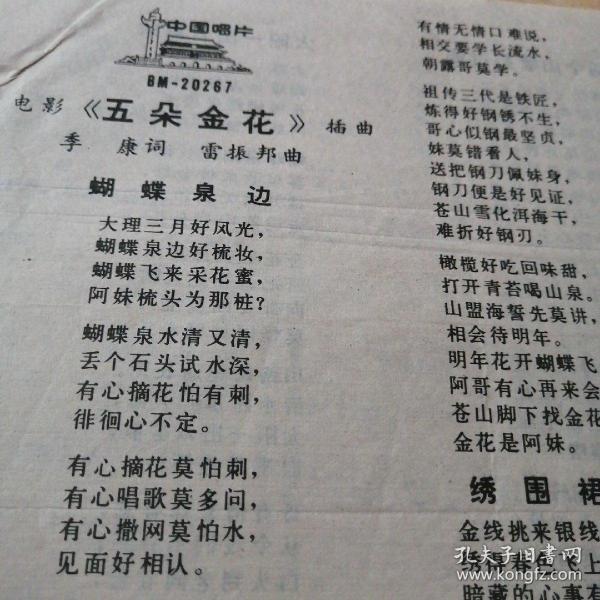 中国唱片
BM-20267
电影《五朵金花》插曲
季康词 雷振邦曲
蝴蝶泉边
大理三月好风光，
蝴蝶泉边好梳妆，
蝴蝶飞来采花蜜，
阿妹梳头为那桩？
蝴蝶泉水清又清，
丢个石头试水深，
有心摘花怕有刺，
徘徊心不定。
有心摘花莫怕刺，
有心唱歌莫多问，
有心撒网莫怕水，
见面好相认。
有情无情口难说，
相交要学长流水，
朝露哥莫学。
祖传三代是铁匠，
炼得好钢锈不生，
哥心似钢最坚贞，
妹莫错看人，
送把钢刀佩妹身，
钢刀便是好见证，
苍山雪化洱海干，
难折好钢刃。
橄榄好吃回味甜，
打开青苔喝山泉。
山盟海誓先莫讲，
相会待明年。
明年花开蝴蝶飞
阿哥有心再来会
苍山脚下找金花
金花是阿妹。
绣围裙
金线挑来银线
绣得春色飞上
暗藏的心事有
孔夫子旧书网
www.kongfz.com